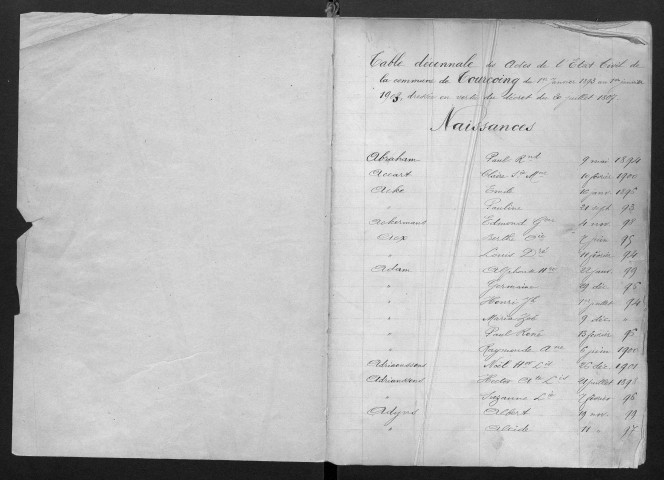 Table décennale des Actes de l'Etat Civil de
la commune de Tourcoing du 1er Janvier 1893 au 1er janvier
1903, dressée en vertu du décret du 20 juillet 1807
Naissances
Abraham Paul Rmd 9 mai 1894
Accart Claire 10 février 1900
Acke Emile 10 janv 1895
Pauline 20 sept 93
Ackermans Edmond 4 nov. 98
Berthe 95
" Louis Dré 11 février 94
Adam Alphonse 22 janv. 99
" Germaine 29 déc. 95
" Henri Jh 1er juillet 94
" Maria 9 déc. "
" Paul René 13 février 96
" Raymonde 6 juin 1900
Adriaenssens Noël Hri Ls 25 déc. 1901
Adriaenssens Hector 21 juillet 1893
" Suzanne 7 février 96
Adyns Albert 19 nov.
" Alcide 11 " 97